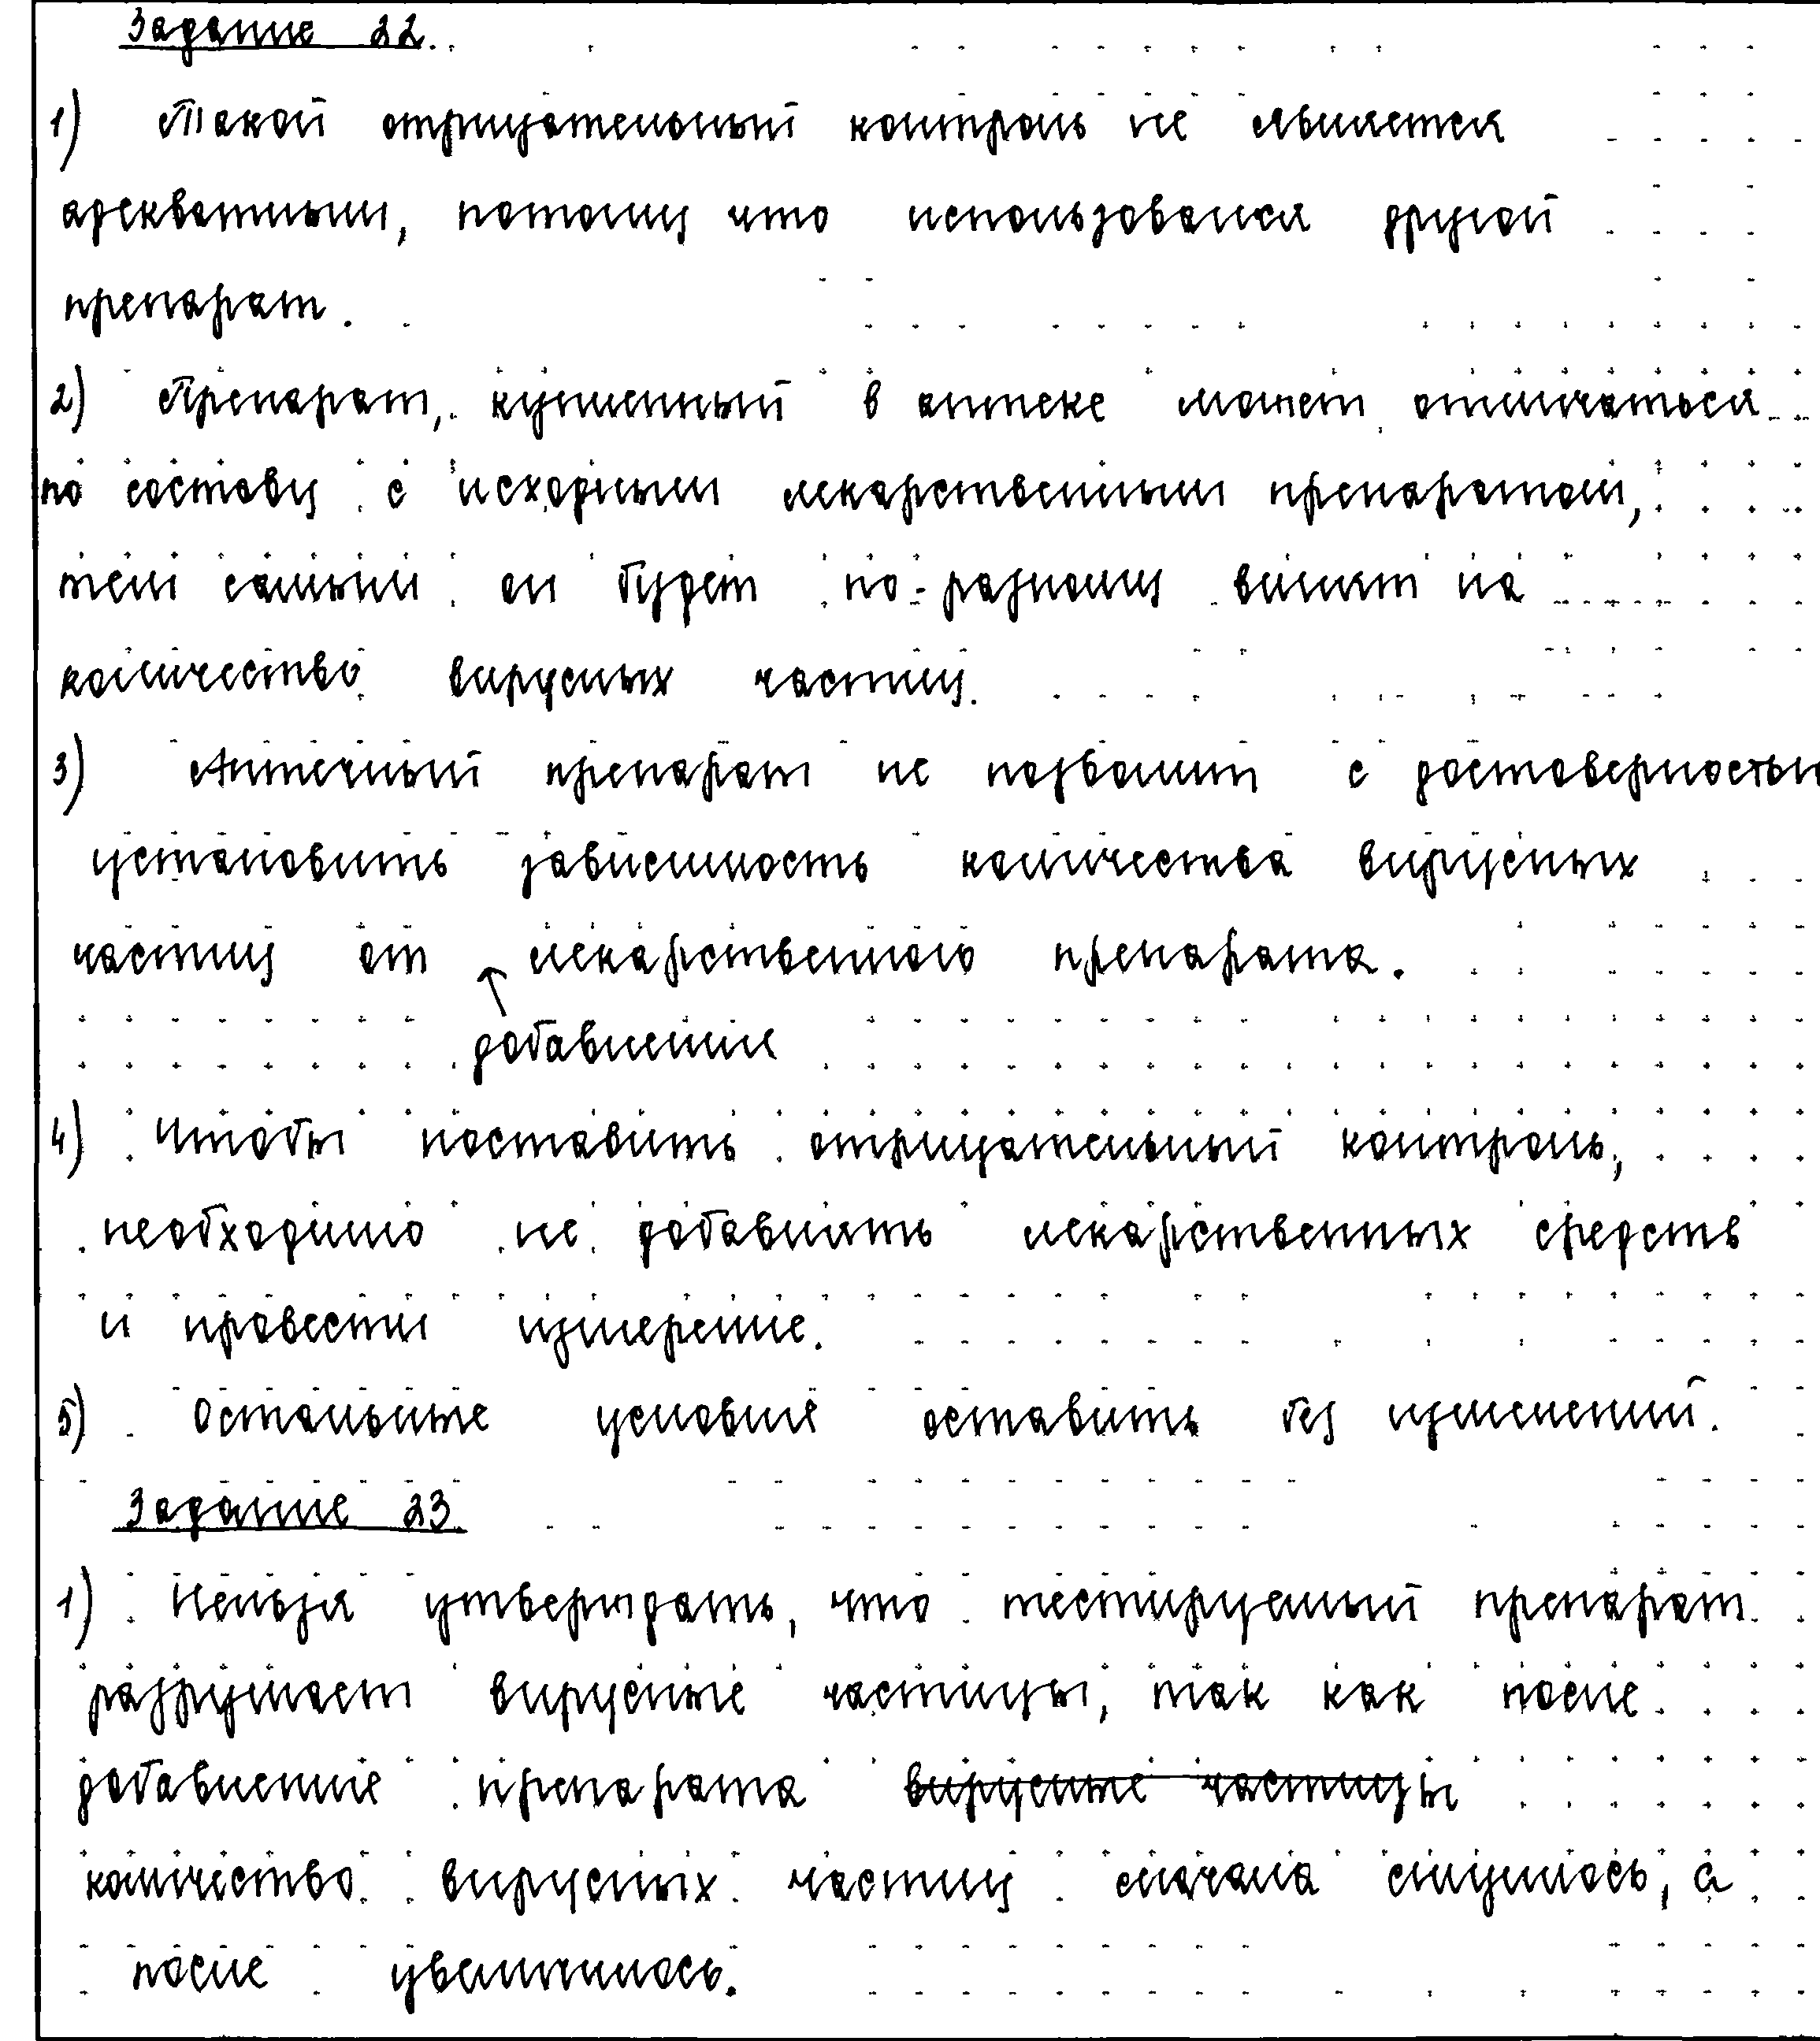 Задание 22.
1) Такой отрицательный контроль не является
адекватным, потому что использовался другой
препарат.
2) Препарат, купленный в аптеке может отличаться
по составу с исходным лекарственным препаратом,
тем самым он будет по-разному влият на
количество вирусных частиц.
3) Аптечный препарат не позволит с достоверностью
установить зависимость количества вирусных
частиц от лекарственного препарата.
добавления
4) Чтобы поставить отрицательный контроль,
необходимо не добавлять лекарственных средств
и провести измерение.
5) Остальные условия оставить без изменений.
Задание 23.
1) Нельзя утверждать, что тестируемый препарат
разрушает вирусные частицы, так как после
добавления препарата вирусные частицы
количество вирусных частиц сначала снизилось, а
после увеличилось.